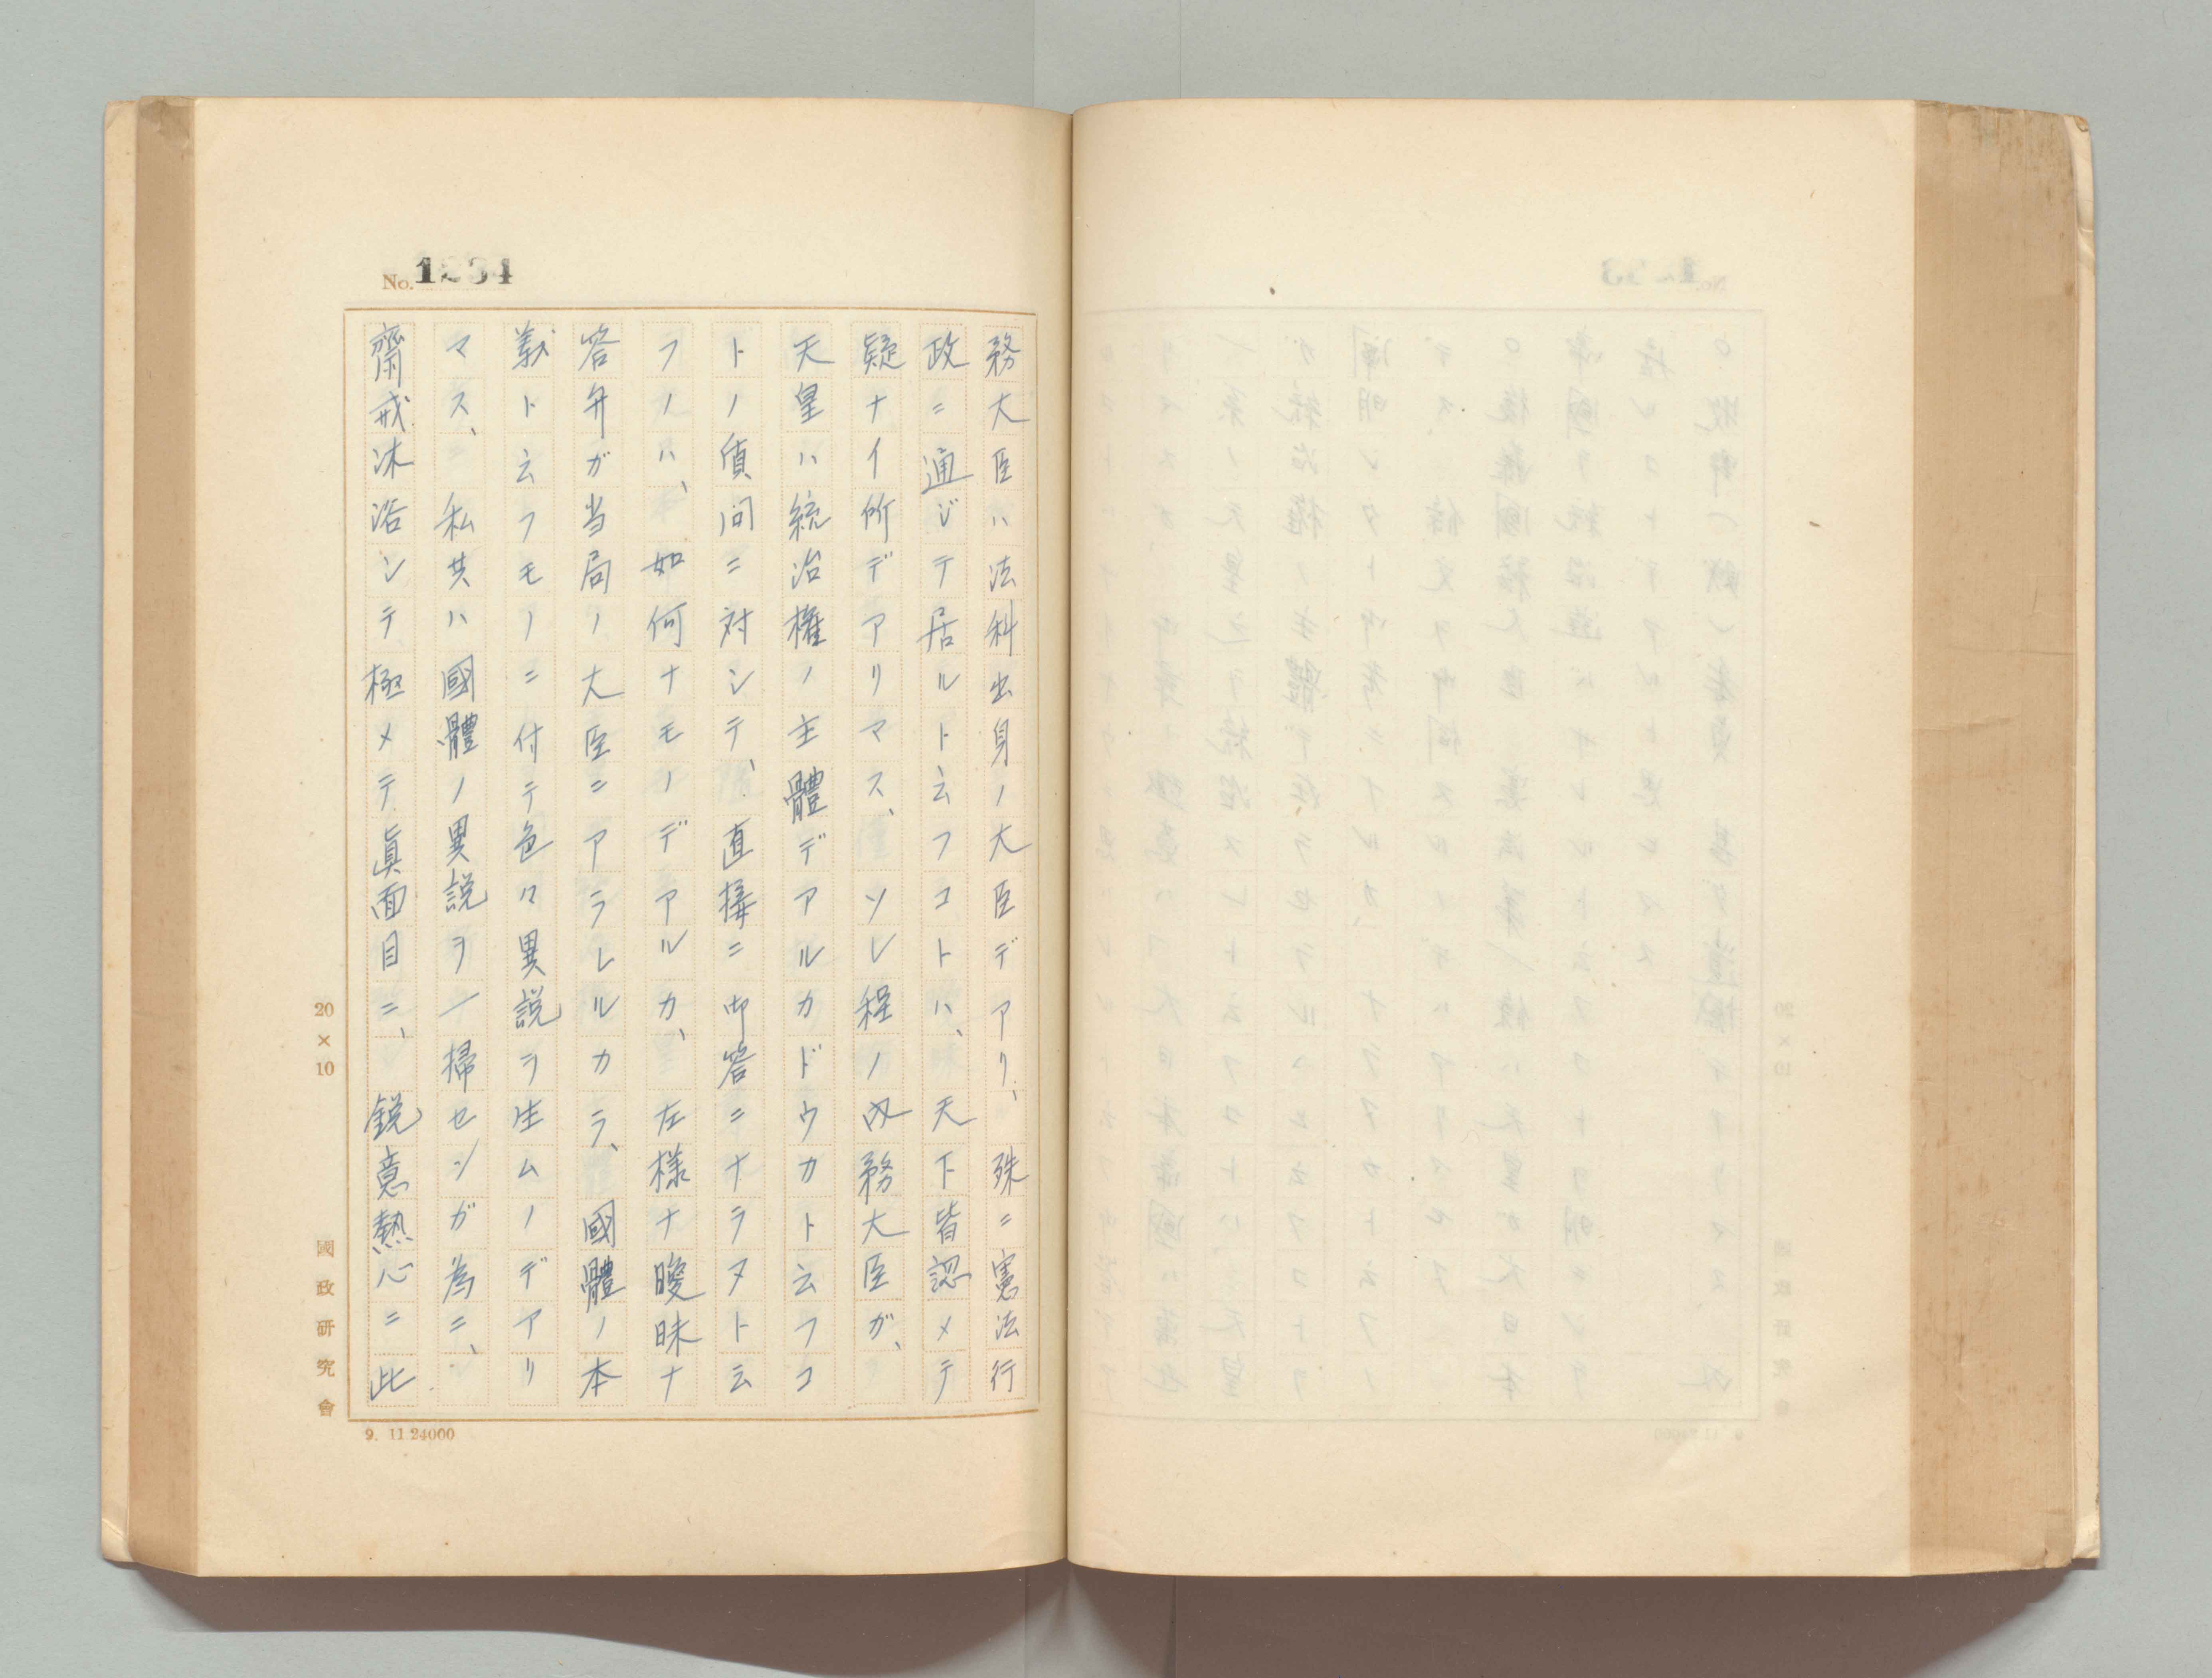 No. 1234
務大臣ハ法科出身ノ大臣デアリ、殊ニ憲法行
政ニ通ジテ居ルト云フコトハ、天下皆認メテ
疑ナイ所デアリマス、ソレ程ノ内務大臣ガ、
天皇ハ統治權ノ主體デアルカドウカト云フコ
トノ質問ニ対シテ、直接ニ御答ニナラヌト云
フノハ、如何ナモノデアルカ、左様ナ曖昧ナ
答弁ガ当局ノ大臣ニアラレルカラ、國體ノ本
義ト云フモノニ付テ色々異説ヲ生ムノデアリ
マス、私共ハ國體ノ異説ヲ一掃センガ為ニ、
齋戒沐浴シテ極メテ眞面目ニ、鋭意熱心ニ此
20×10
國政研究會
9. 11.24000